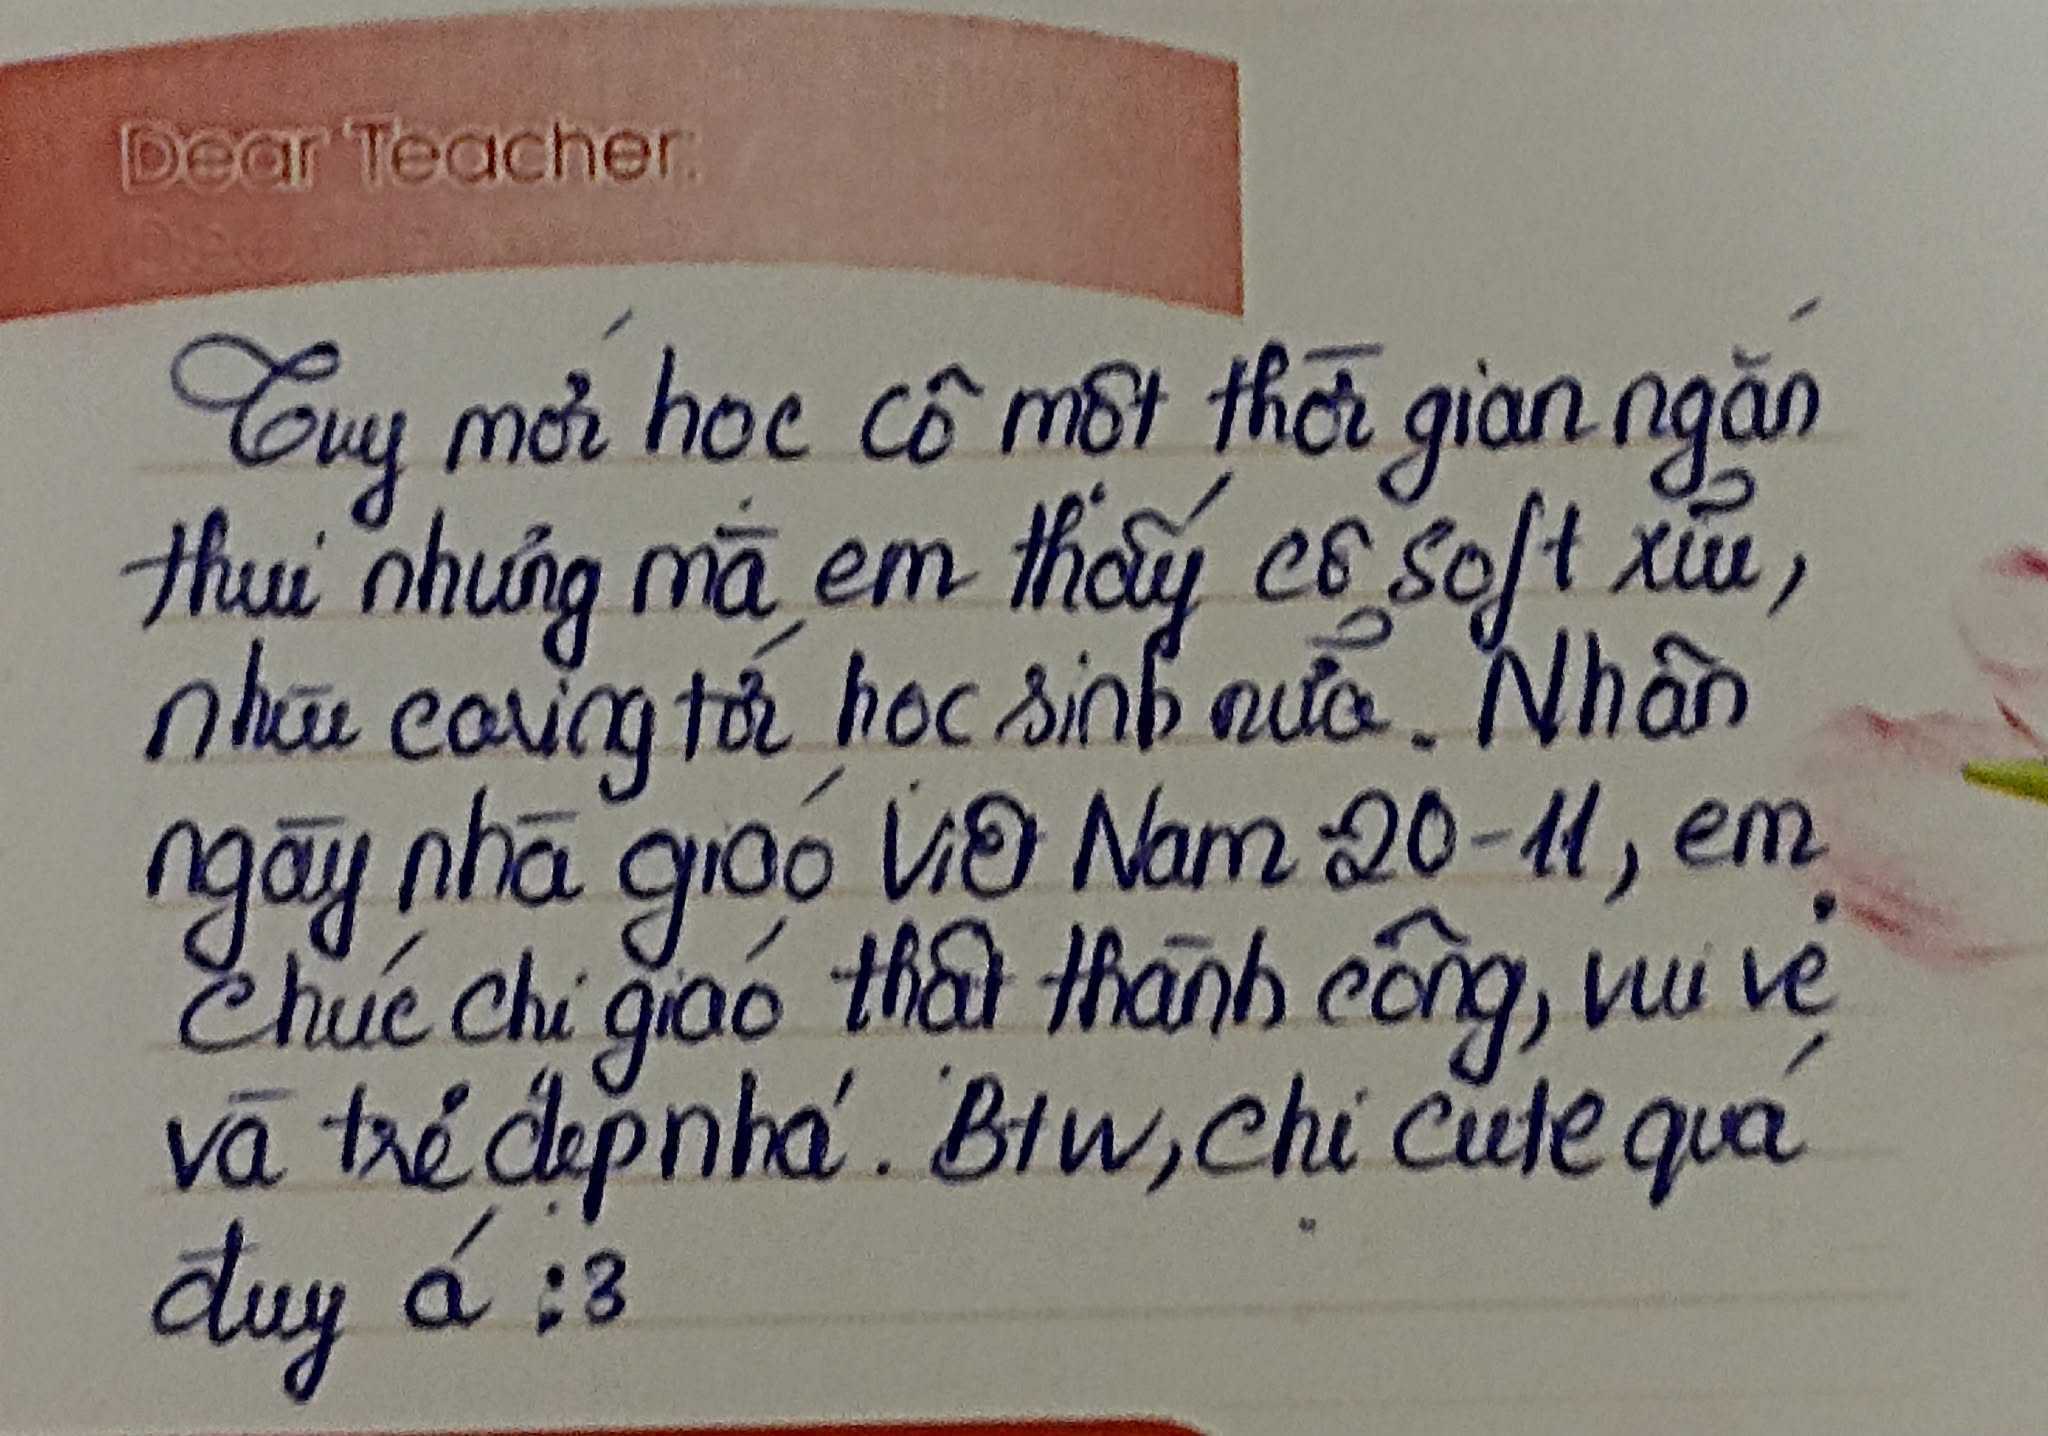 Dear Teacher:
Tuy mới học cô một thời gian ngắn
thui nhưng mà em thấy cô soft xĩu,
nhìu caring tới học sinh nữa. Nhân
ngày nhà giáo Việt Nam 20-11, em
chúc chị giáo thật thành công, vui vẻ
và trẻ đẹp nhá. Btw, chị cute quá
đuy á :3